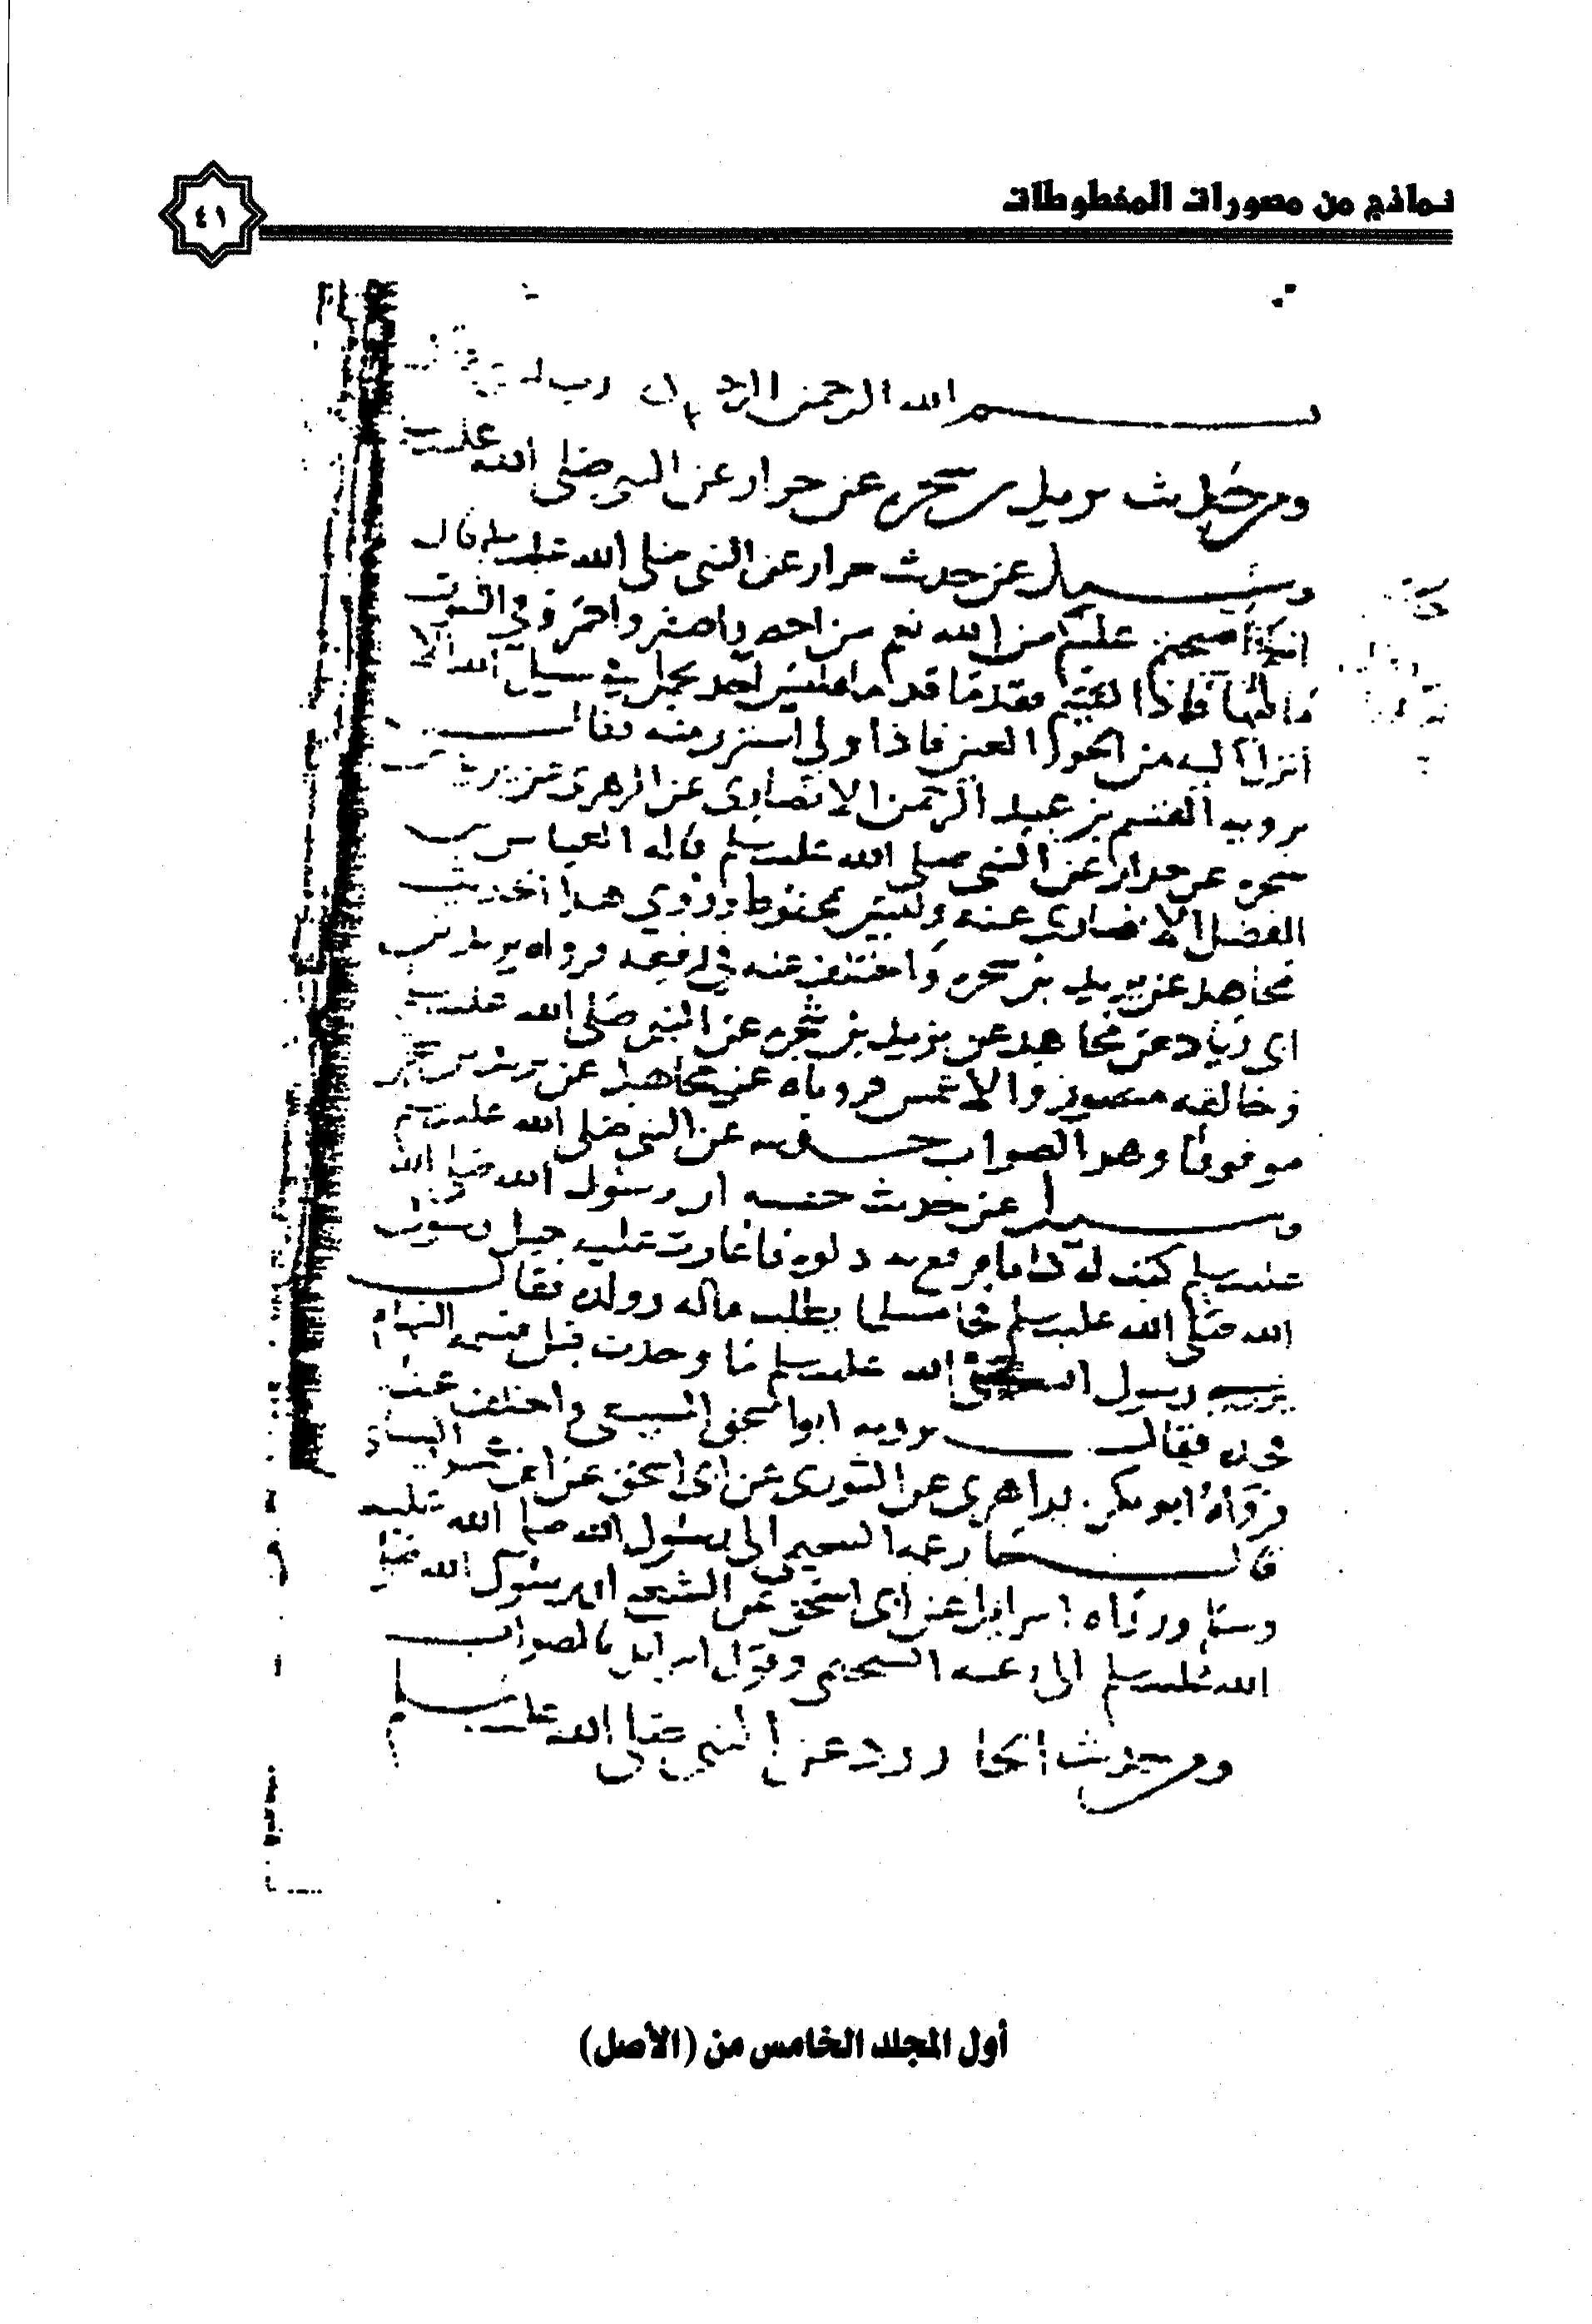 نماذج من مصورات المخطوطات
٤١
بسم الله الرحمن
ومن حديث يزيد بن شجرة عن جدار عن النبي صلى الله عليه
وسئل عن حديث جدار عن النبي صلى الله عليه وسلم قال
أصبحتم عليكم من الله نعم من أخضر وأصفر وأحمر وفي البيوت
ما فيها فإذا لقيتم فقدما قدما فليس أحد يحمل في سبيل الله إلا
إليه من الحور العين فإذا ولى استترن منه فقال
يرويه القسم بن عبد الرحمن الانصارى عن الزهرى عن يزيد بن
شجرة عن جدار عن النبي صلى الله عليه وسلم قاله العباس بن
الفضل الانصارى عنه وليس بمحفوظ وروي هذا الحديث
مجاهد عن يزيد بن شجرة واختلف عنه في رفعه فرواه يزيد بن
ابى زياد عن مجاهد عن يزيد بن شجرة عن النبي صلى الله عليه
وخالفه منصور والاعمش فروياه عن مجاهد عن يزيد بن شجرة
موقوفا وهو الصواب عن النبي صلى الله عليه وسلم
وسئل عن حديث ان رسول الله صلى الله
عليه وسلم كتب له كتابا فرقع به دلوه فأغارت عليه خيل رسول
الله صلى الله عليه وسلم فجا مسلما يطلب ماله وولده فقال
رسول الله صلى الله عليه وسلم ما وجدت قبل قسمة السهام
فخذه فقال يرويه ابو اسحق السبيعي واختلف عنه
فرواه ابو بكر الداهري عن الثورى عن ابى اسحق عن ابى عمرو الشيباني
قال جا رعيه السحيمي الى رسول الله صلى الله عليه
وسلم ورواه اسرائيل عن ابى اسحق عن الشعبي ان رسول الله صلى
الله عليه وسلم الى رعيه السحيمي وقول اسرائيل بالصواب
ومن حديث الجارود عن النبي صلى الله عليه وسلم
أول المجلد الخامس من (الأصل)